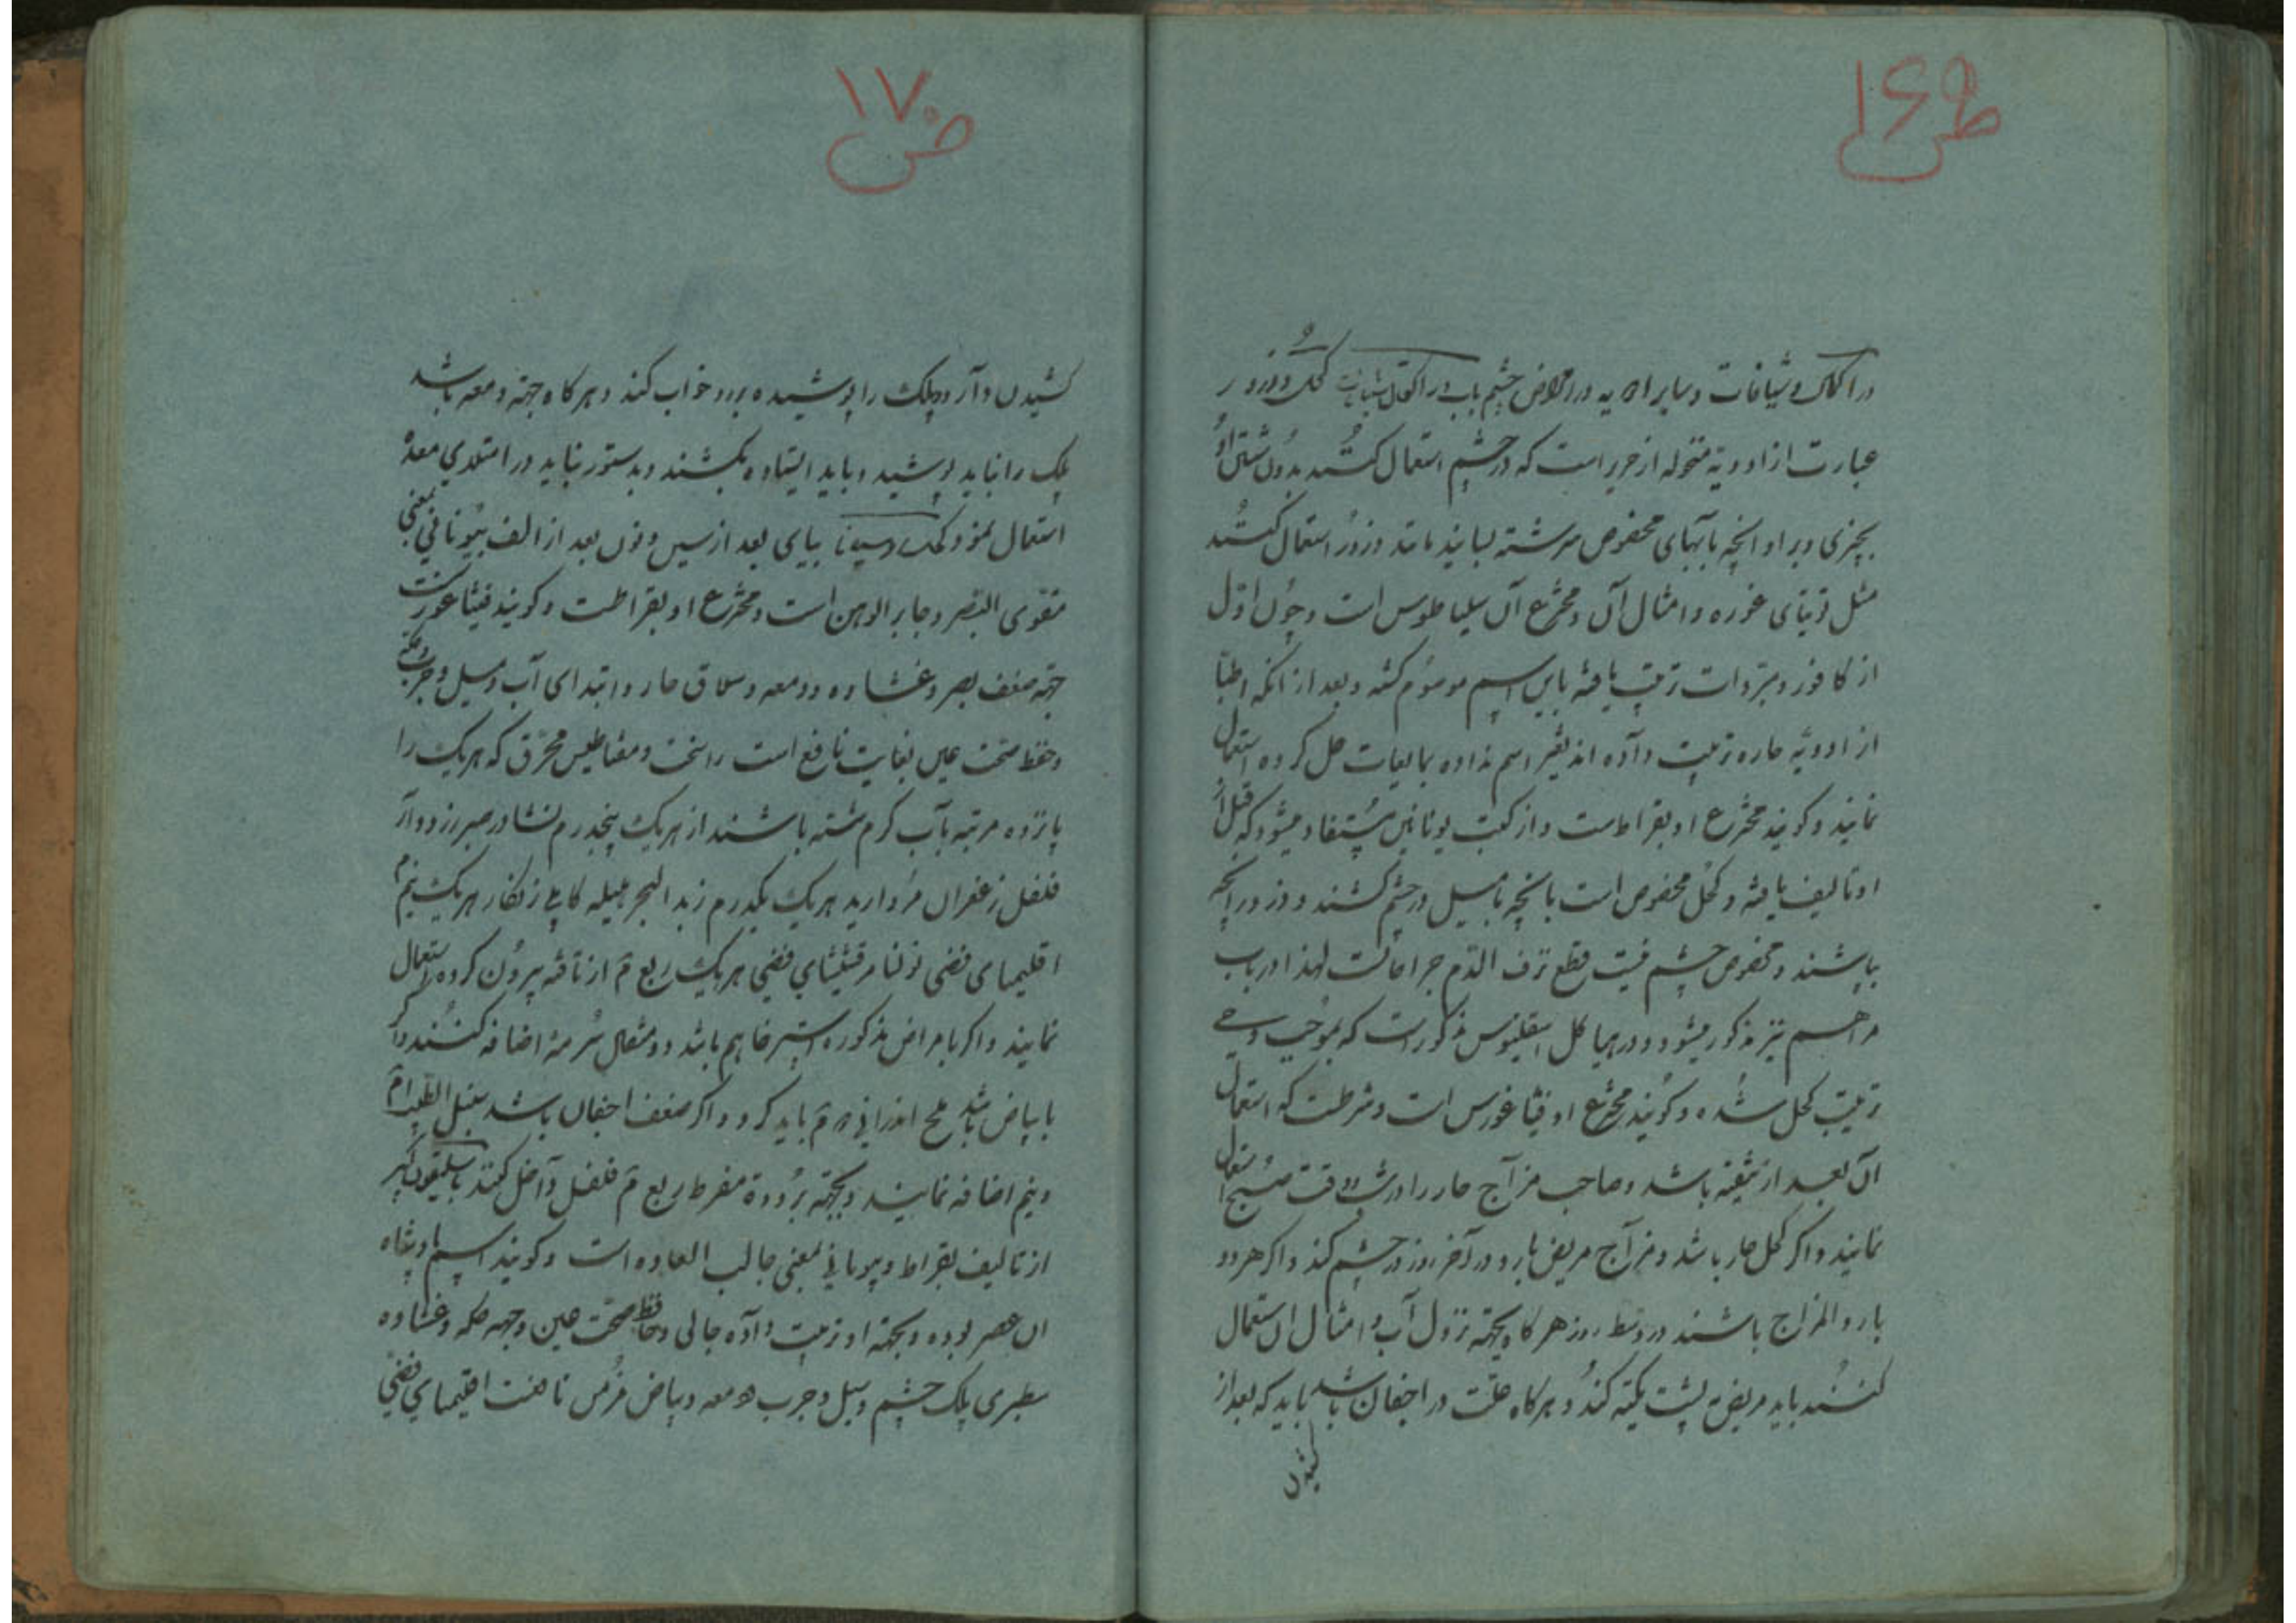 ص ۱۶۹
در اکحال و شیافات و سایر ادویه در امراض چشم باب در اکحال شیافات کحل و ذرور
عبارت از ادویهٔ منخوله از حریر است که در چشم استعمال کنند بدون شستن او
بچیزی و برا و آنچه بآبهای مخصوص سرشته بسایند مانند ذرور استعمال کنند
مثل توتیای غوره و امثال آن و مخترع آن سلیاطوس است و چون اوّل
از کافور و مبرّدات ترتیب یافته باین اسم موسوم کشته و بعد از آنکه اطبّا
از ادویّه حاره ترتیب داده اند تغیر اسم نداده بمایعات حل کرده استعمال
نمایند و کویند مخترع او بقراطست و از کتب یونانین مستفاد میشود که قبل از
او تالیف یافته و کحل مخصوص است بانچه با میل در چشم کشند و ذرور آنچه
بپاشند و مخصوص چشم نیست قطع نزف الدّم جراحاتست لهذا در باب
مراهم نیز مذکور میشود و در هیاکل اسقلینوس مذکور است که بموجب وحی
ترتیب کحل شده و کویند مخترع او فیثاغورس است و شرطست که استعمال
آن بعد از تنقیه باشد و صاحب مزآج حار را در شب و وقت صبح استعمال
نمایند و اکر کحل حار باشد و مزآج مریض بارد در آخر روز در چشم کند و اکر هر دو
بارد المزاج باشند در وسط روز هر کاه بجهته نزول آب و امثال ان استعمال
کنند باید مریض به پشت تکیه کند و هر کاه علّت در اجفان باشد باید که بعد از
کشیدن
ص ۱۷۰
کشیدن دآرو پلک را پوشیده برو خواب کند و هر کاه جهته دمعه باشد
پلک را نباید پوشید و باید ایستاده بکشند و بدستور نباید در امتلای معدهٔ
استعمال نمود کحل روسینا بیای بعد از سین و نون بعد از الف بیونانی بمعنی
مقوی البصر و جابر الوهن است و مخترع او بقراطست و کویند فیثاغورست
جهته ضعف بصر و غشاوه و دمعه و سلاق حار و ابتدای آب و سبل و جرب و حکّه
و حفظ صحّت عین بغایت نافع است راسخت و مغناطیس محرّق که هر یک را
پانزده مرتبه بآب کرم شسته باشند از هر یک پنجدرم نشادر صبر زرد دآر
فلفل زعفران مروارید هر یک یکدرم زبد البحر هلیله کابلی زنکار هر یک نیم م
اقلیمیای فضی نوکنار مرقشیشای فضی هر یک ربع م از تافته بیرون کرده استعمال
نمایند و اکر با مراض مذکوره استرخا هم باشد دو مثقال سُرمهٔ اضافه کنند و اکر
با بیاض باشد ملح اندرانی م باید کرد و اکر ضعف اجفان باشد سنبل الطّیب م
و نیم اضافه نمایند و بجهته برودة مفرط ربع م فلفل دآخل کنند باسلیقون کبیر
از تالیف بقراط و بیونانی بمعنی جالب السعاده است و کویند اسم پادشاه
ان عصر بوده و بجهته او ترتیب دآده جالی و حافظ صحّت عین و جهه حکه و غشاوه
سطبری پلک چشم و سبل و جرب و دمعه و بیاض مزمن نافعست اقلیمیای فضی